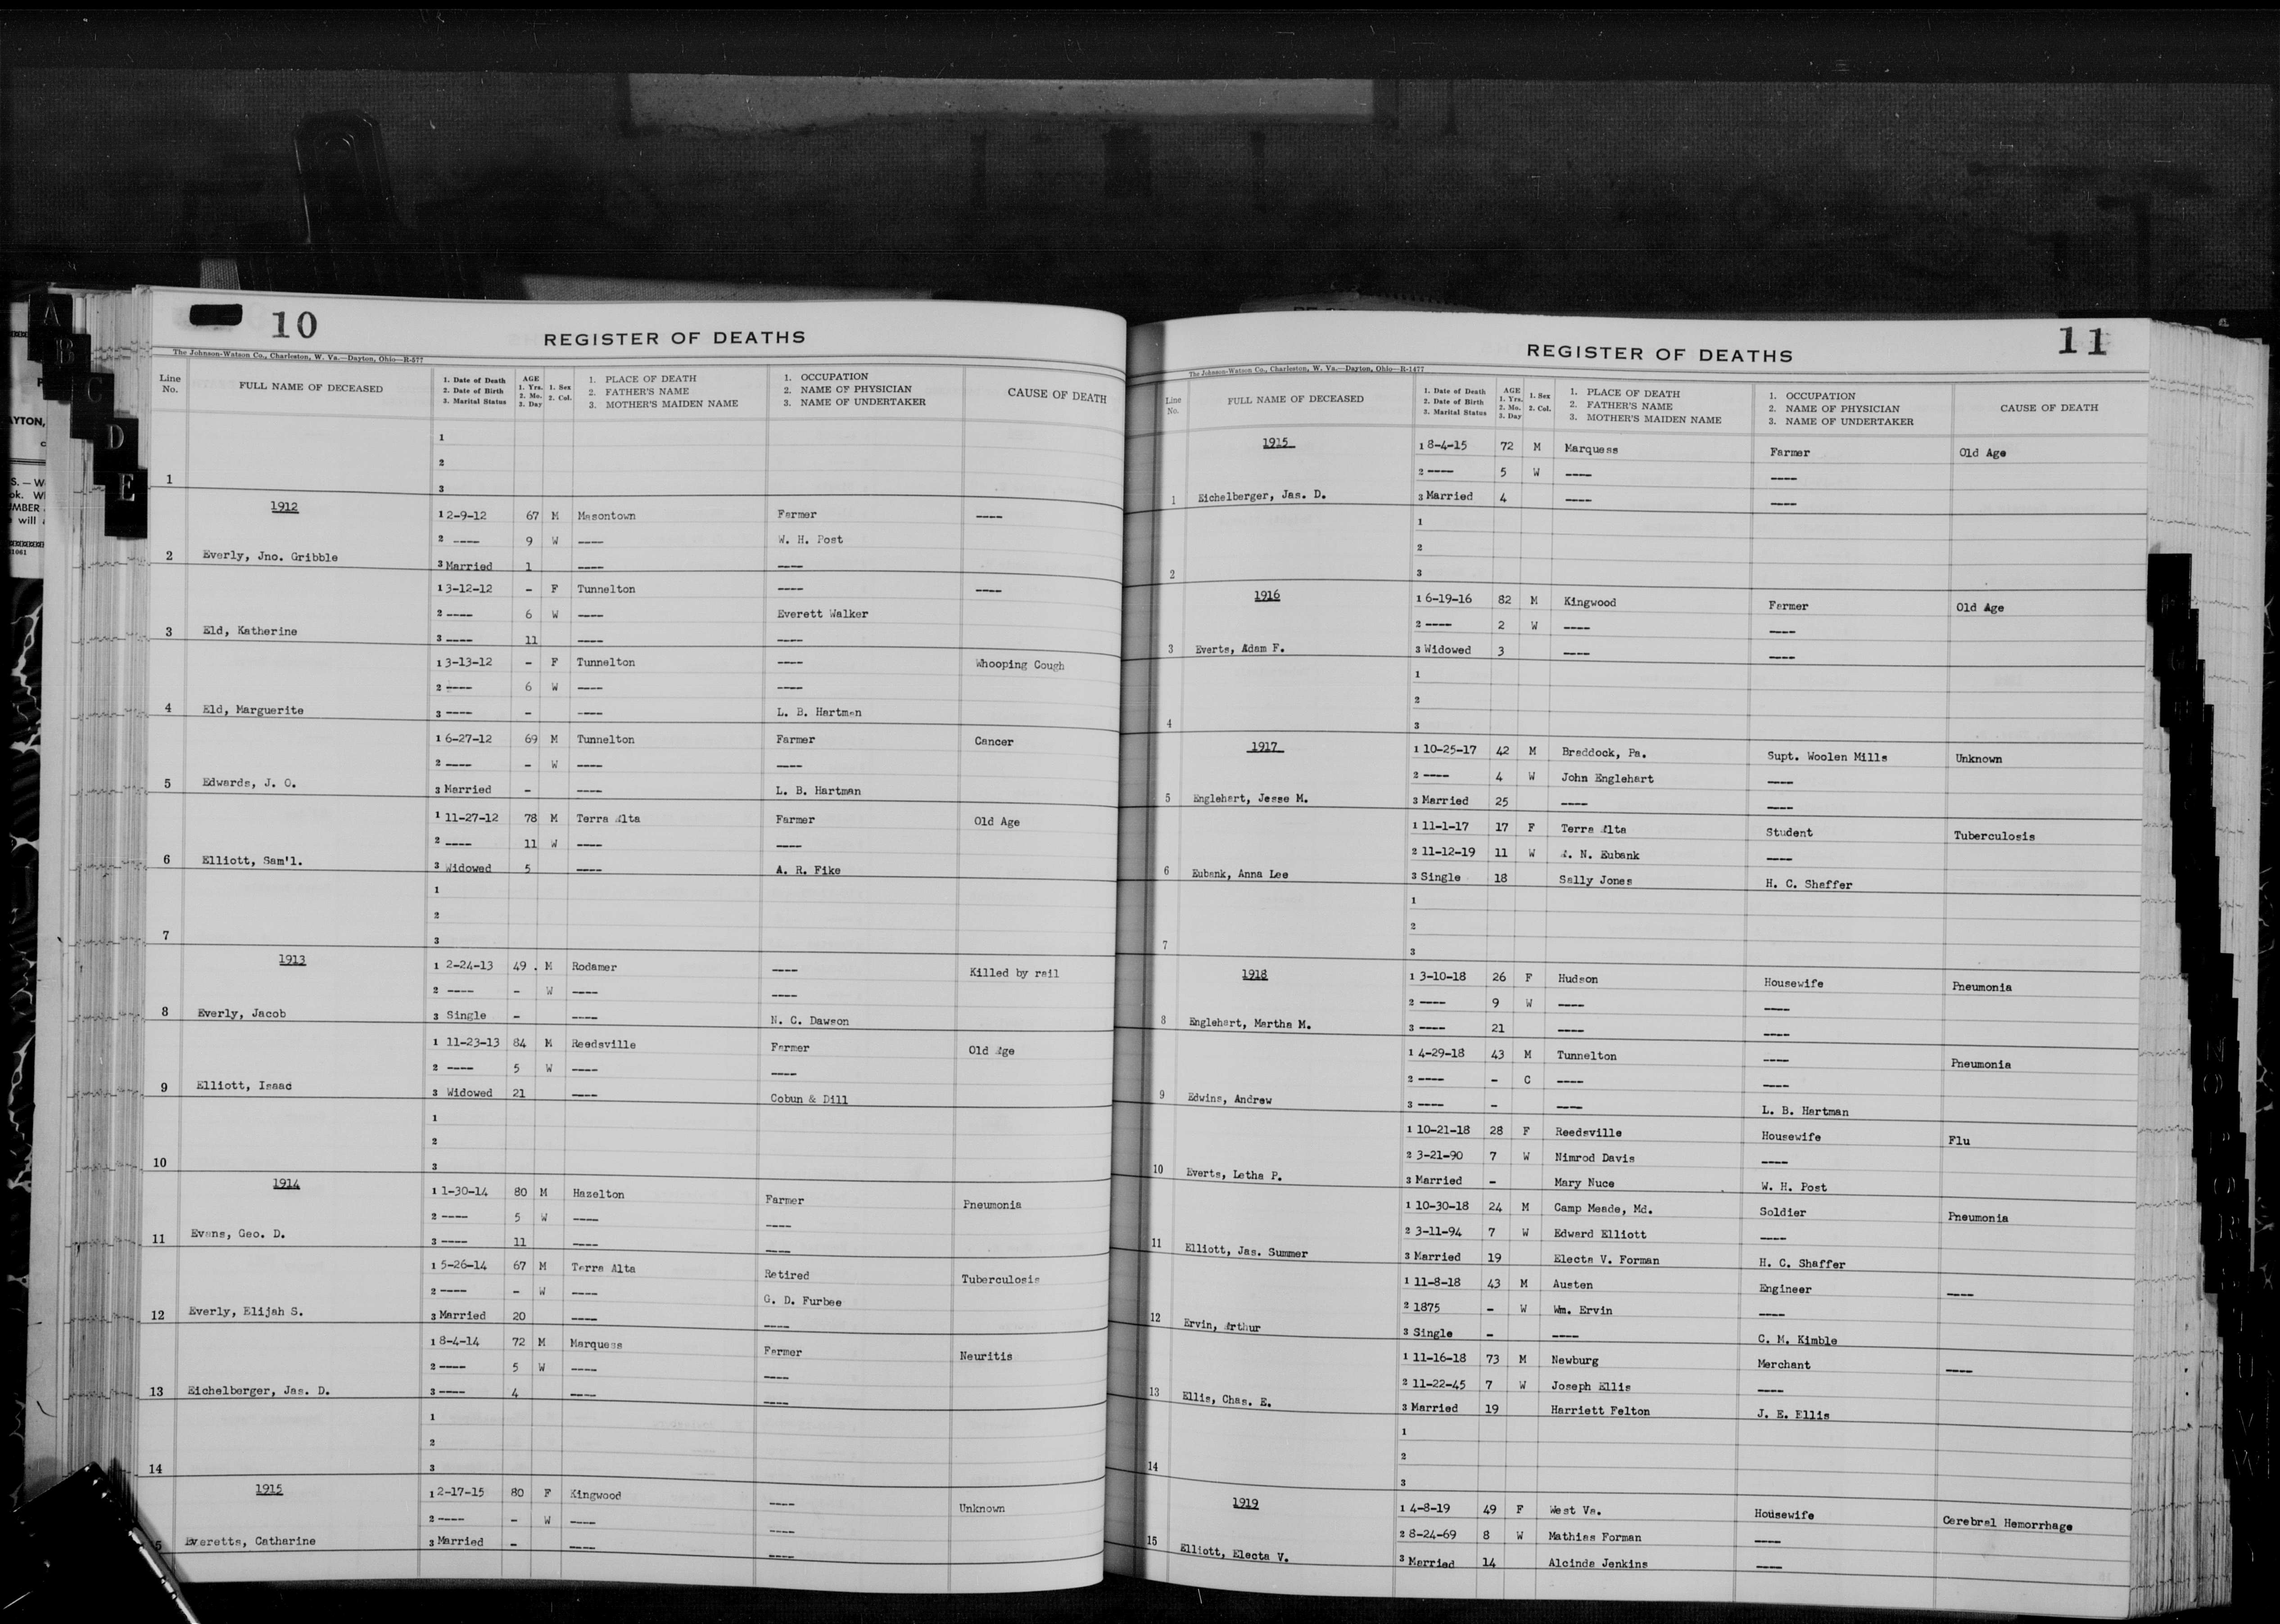 A
B
C
D
E
10
REGISTER OF DEATHS
The Johnson-Watson Co., Charleston, W. Va.—Dayton, Ohio—R-577
Line No. | FULL NAME OF DECEASED | 1. Date of Death 2. Date of Birth 3. Marital Status | AGE 1. Yrs. 2. Mo. 3. Day | 1. Sex 2. Col. | 1. PLACE OF DEATH 2. FATHER'S NAME 3. MOTHER'S MAIDEN NAME | 1. OCCUPATION 2. NAME OF PHYSICIAN 3. NAME OF UNDERTAKER | CAUSE OF DEATH
1
2
1 3
1912
1 2-9-12 67 M Masontown Farmer ----
2 ---- 9 W ---- W. H. Post
2 Everly, Jno. Gribble 3 Married 1 ---- ----
1 3-12-12 - F Tunnelton ---- ----
2 ---- 6 W ---- Everett Walker
3 Eld, Katherine 3 ---- 11 ---- ----
1 3-13-12 - F Tunnelton ---- Whooping Cough
2 ---- 6 W ---- ----
4 Eld, Marguerite 3 ---- - ---- L. B. Hartman
1 6-27-12 69 M Tunnelton Farmer Cancer
2 ---- - W ---- ----
5 Edwards, J. O. 3 Married - ---- L. B. Hartman
1 11-27-12 78 M Terra Alta Farmer Old Age
2 ---- 11 W ---- ----
6 Elliott, Sam'l. 3 Widowed 5 ---- A. R. Fike
1
2
7 3
1913
1 2-24-13 49 . M Rodamer ---- Killed by rail
2 ---- - W ---- ----
8 Everly, Jacob 3 Single - ---- N. C. Dawson
1 11-23-13 84 M Reedsville Farmer Old Age
2 ---- 5 W ---- ----
9 Elliott, Isaac 3 Widowed 21 ---- Cobun & Dill
1
2
10 3
1914
1 1-30-14 80 M Hazelton Farmer Pneumonia
2 ---- 5 W ---- ----
11 Evans, Geo. D. 3 ---- 11 ---- ----
1 5-26-14 67 M Terra Alta Retired Tuberculosis
2 ---- - W ---- G. D. Furbee
12 Everly, Elijah S. 3 Married 20 ---- ----
1 8-4-14 72 M Marquess Farmer Neuritis
2 ---- 5 W ---- ----
13 Eichelberger, Jas. D. 3 ---- 4 ---- ----
1
2
14 3
1915
1 2-17-15 80 F Kingwood ---- Unknown
2 ---- - W ---- ----
5 Everetts, Catharine 3 Married - ---- ----
11
REGISTER OF DEATHS
The Johnson-Watson Co., Charleston, W. Va.—Dayton, Ohio—R-1477
Line No. | FULL NAME OF DECEASED | 1. Date of Death 2. Date of Birth 3. Marital Status | AGE 1. Yrs. 2. Mo. 3. Day | 1. Sex 2. Col. | 1. PLACE OF DEATH 2. FATHER'S NAME 3. MOTHER'S MAIDEN NAME | 1. OCCUPATION 2. NAME OF PHYSICIAN 3. NAME OF UNDERTAKER | CAUSE OF DEATH
1915
1 8-4-15 72 M Marquess Farmer Old Age
2 ---- 5 W ---- ----
1 Eichelberger, Jas. D. 3 Married 4 ---- ----
1
2
2 3
1916
1 6-19-16 82 M Kingwood Farmer Old Age
2 ---- 2 W ---- ----
3 Everts, Adam F. 3 Widowed 3 ---- ----
1
2
4 3
1917
1 10-25-17 42 M Braddock, Pa. Supt. Woolen Mills Unknown
2 ---- 4 W John Englehart ----
5 Englehart, Jesse M. 3 Married 25 ---- ----
1 11-1-17 17 F Terra Alta Student Tuberculosis
2 11-12-19 11 W A. N. Eubank ----
6 Eubank, Anna Lee 3 Single 18 Sally Jones H. C. Shaffer
1
2
7 3
1918
1 3-10-18 26 F Hudson Housewife Pneumonia
2 ---- 9 W ---- ----
8 Englehart, Martha M. 3 ---- 21 ---- ----
1 4-29-18 43 M Tunnelton ---- Pneumonia
2 ---- - C ---- ----
9 Edwins, Andrew 3 ---- - ---- L. B. Hartman
1 10-21-18 28 F Reedsville Housewife Flu
2 3-21-90 7 W Nimrod Davis ----
10 Everts, Letha P. 3 Married - Mary Nuce W. H. Post
1 10-30-18 24 M Camp Meade, Md. Soldier Pneumonia
2 3-11-94 7 W Edward Elliott ----
11 Elliott, Jas. Summer 3 Married 19 Electa V. Forman H. C. Shaffer
1 11-8-18 43 M Austen Engineer ----
2 1875 - W Wm. Ervin ----
12 Ervin, Arthur 3 Single - ---- C. M. Kimble
1 11-16-18 73 M Newburg Merchant ----
2 11-22-45 7 W Joseph Ellis ----
13 Ellis, Chas. E. 3 Married 19 Harriett Felton J. E. Ellis
1
2
14 3
1919
1 4-8-19 49 F West Va. Housewife Cerebral Hemorrhage
2 8-24-69 8 W Mathias Forman ----
15 Elliott, Electa V. 3 Married 14 Alcinda Jenkins ----